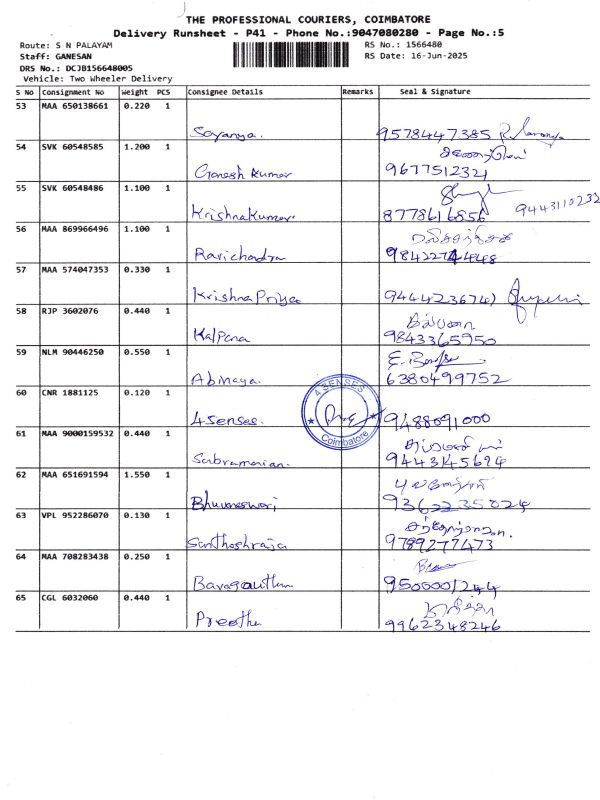 THE PROFESSIONAL COURIERS, COIMBATORE
Delivery Runsheet - P41 - Phone No.:9047080280 - Page No.:5
Route: S N PALAYAM
RS No.: 1566480
Staff: GANESAN
RS Date: 16-Jun-2025
DRS No.: DCJB156648005
Vehicle: Two Wheeler Delivery
S No Consignment No Weight PCS Consignee Details Remarks Seal & Signature
53 MAA 650138661 0.220 1
Sayanya. 9578447385
54 SVK 60548585 1.200 1
Ganesh Kumar 9677512321
55 SVK 60548486 1.100 1
9443110232
KrishnaKumar. 8778616856
56 MAA 869966496 1.100 1
Ravichandra
57 MAA 574047353 0.330 1
KrishnaPriya
58 RJP 3602076 0.440 1
கல்பனா
Kalpana 9843365950
59 NLM 90446250 0.550 1
Abinaya. 6380499752
60 CNR 1881125 0.120 1
4 SENSES
4senses. 9488091000
Coimbatore
61 MAA 9000159532 0.440 1
Subramanian. 9443145624
62 MAA 651691594 1.550 1
Bhuvaneswari 9362235024
63 VPL 952286070 0.130 1
Santhoshraja 9789277473
64 MAA 708283438 0.250 1
9500001244
65 CGL 6032060 0.440 1
Preetha 9962348246